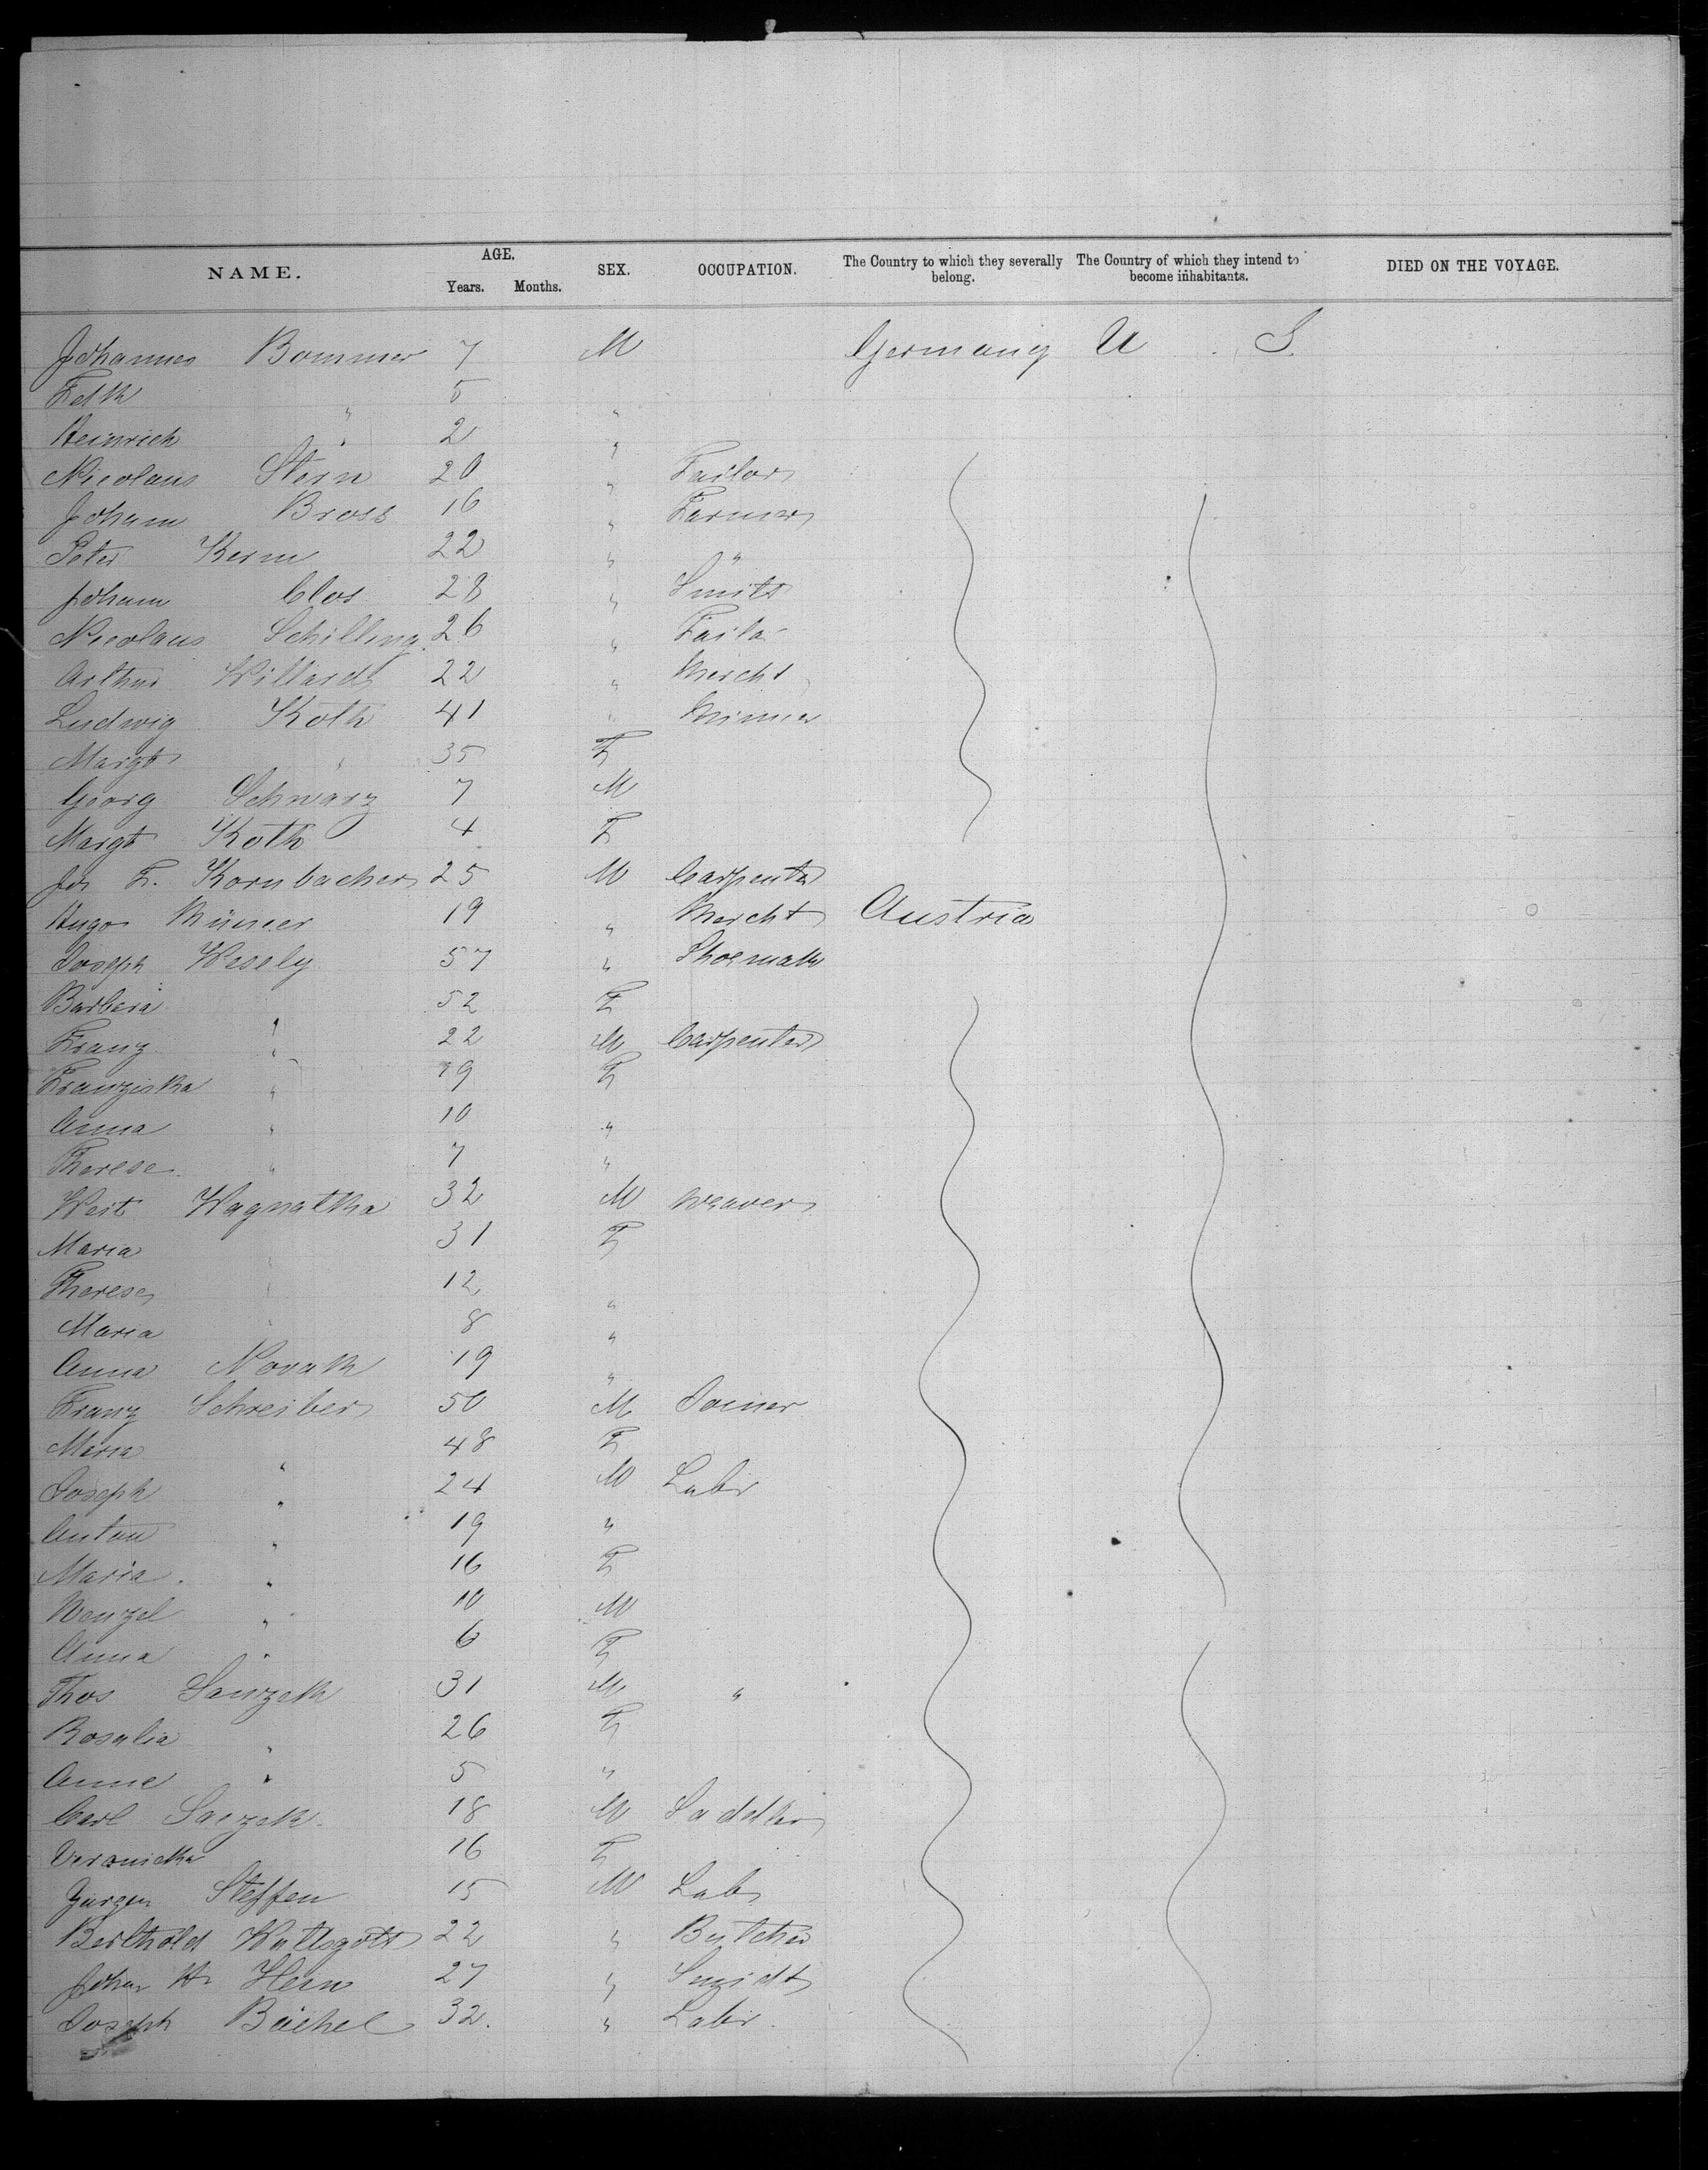 NAME. AGE. Years. Months. SEX. OCCUPATION. The Country to which they severally belong. The Country of which they intend to become inhabitants. DIED ON THE VOYAGE.
Johannes Bommer 7 M Germany U. S.
5
Heinrich " 2 "
Nicolaus Stern 20 " Tailor
Joham Bross 16 " Farmer
Peter Kerm 22 " "
Joham Clos 28 " Smith
Nicolaus Schilling 26 " Tailor
Arthur Willards 22 " Mercht
Ludwig Koth 41 " Minner
Margt " 35 F
Georg Schwarz 7 M
Margt Koth 4 F
Js F. Kornbacher 25 M Carpenter
Hugo Münzer 19 " Mercht Austria
Joseph Wesely 57 " Shoemak
Barbera " 52 F
Franz " 22 M Carpenter
Franziska " 19 F
Anna " 10 "
Therese " 7 "
Weit Wagnatka 32 M Weaver
Maria " 31 F
Therese " 12 "
Maria " 8 "
Anna Novak 19 "
Franz Schreiber 50 M Joiner
Maria " 48 F
Joseph " 24 M Labr
Anton " 19 "
Maria " 16 F
Wenzel " 10 M
Anna " 6 F
Thos 31 M "
Rosalia " 26 F
Anne " 5 "
Carl 18 M Saddler
Veronicka 16 F
Jurgen Steffen 15 M Lab
Berthold 22 " Butcher
Johan H. Hern 27 " Smidt
Joseph Bächel 32. " Labr.